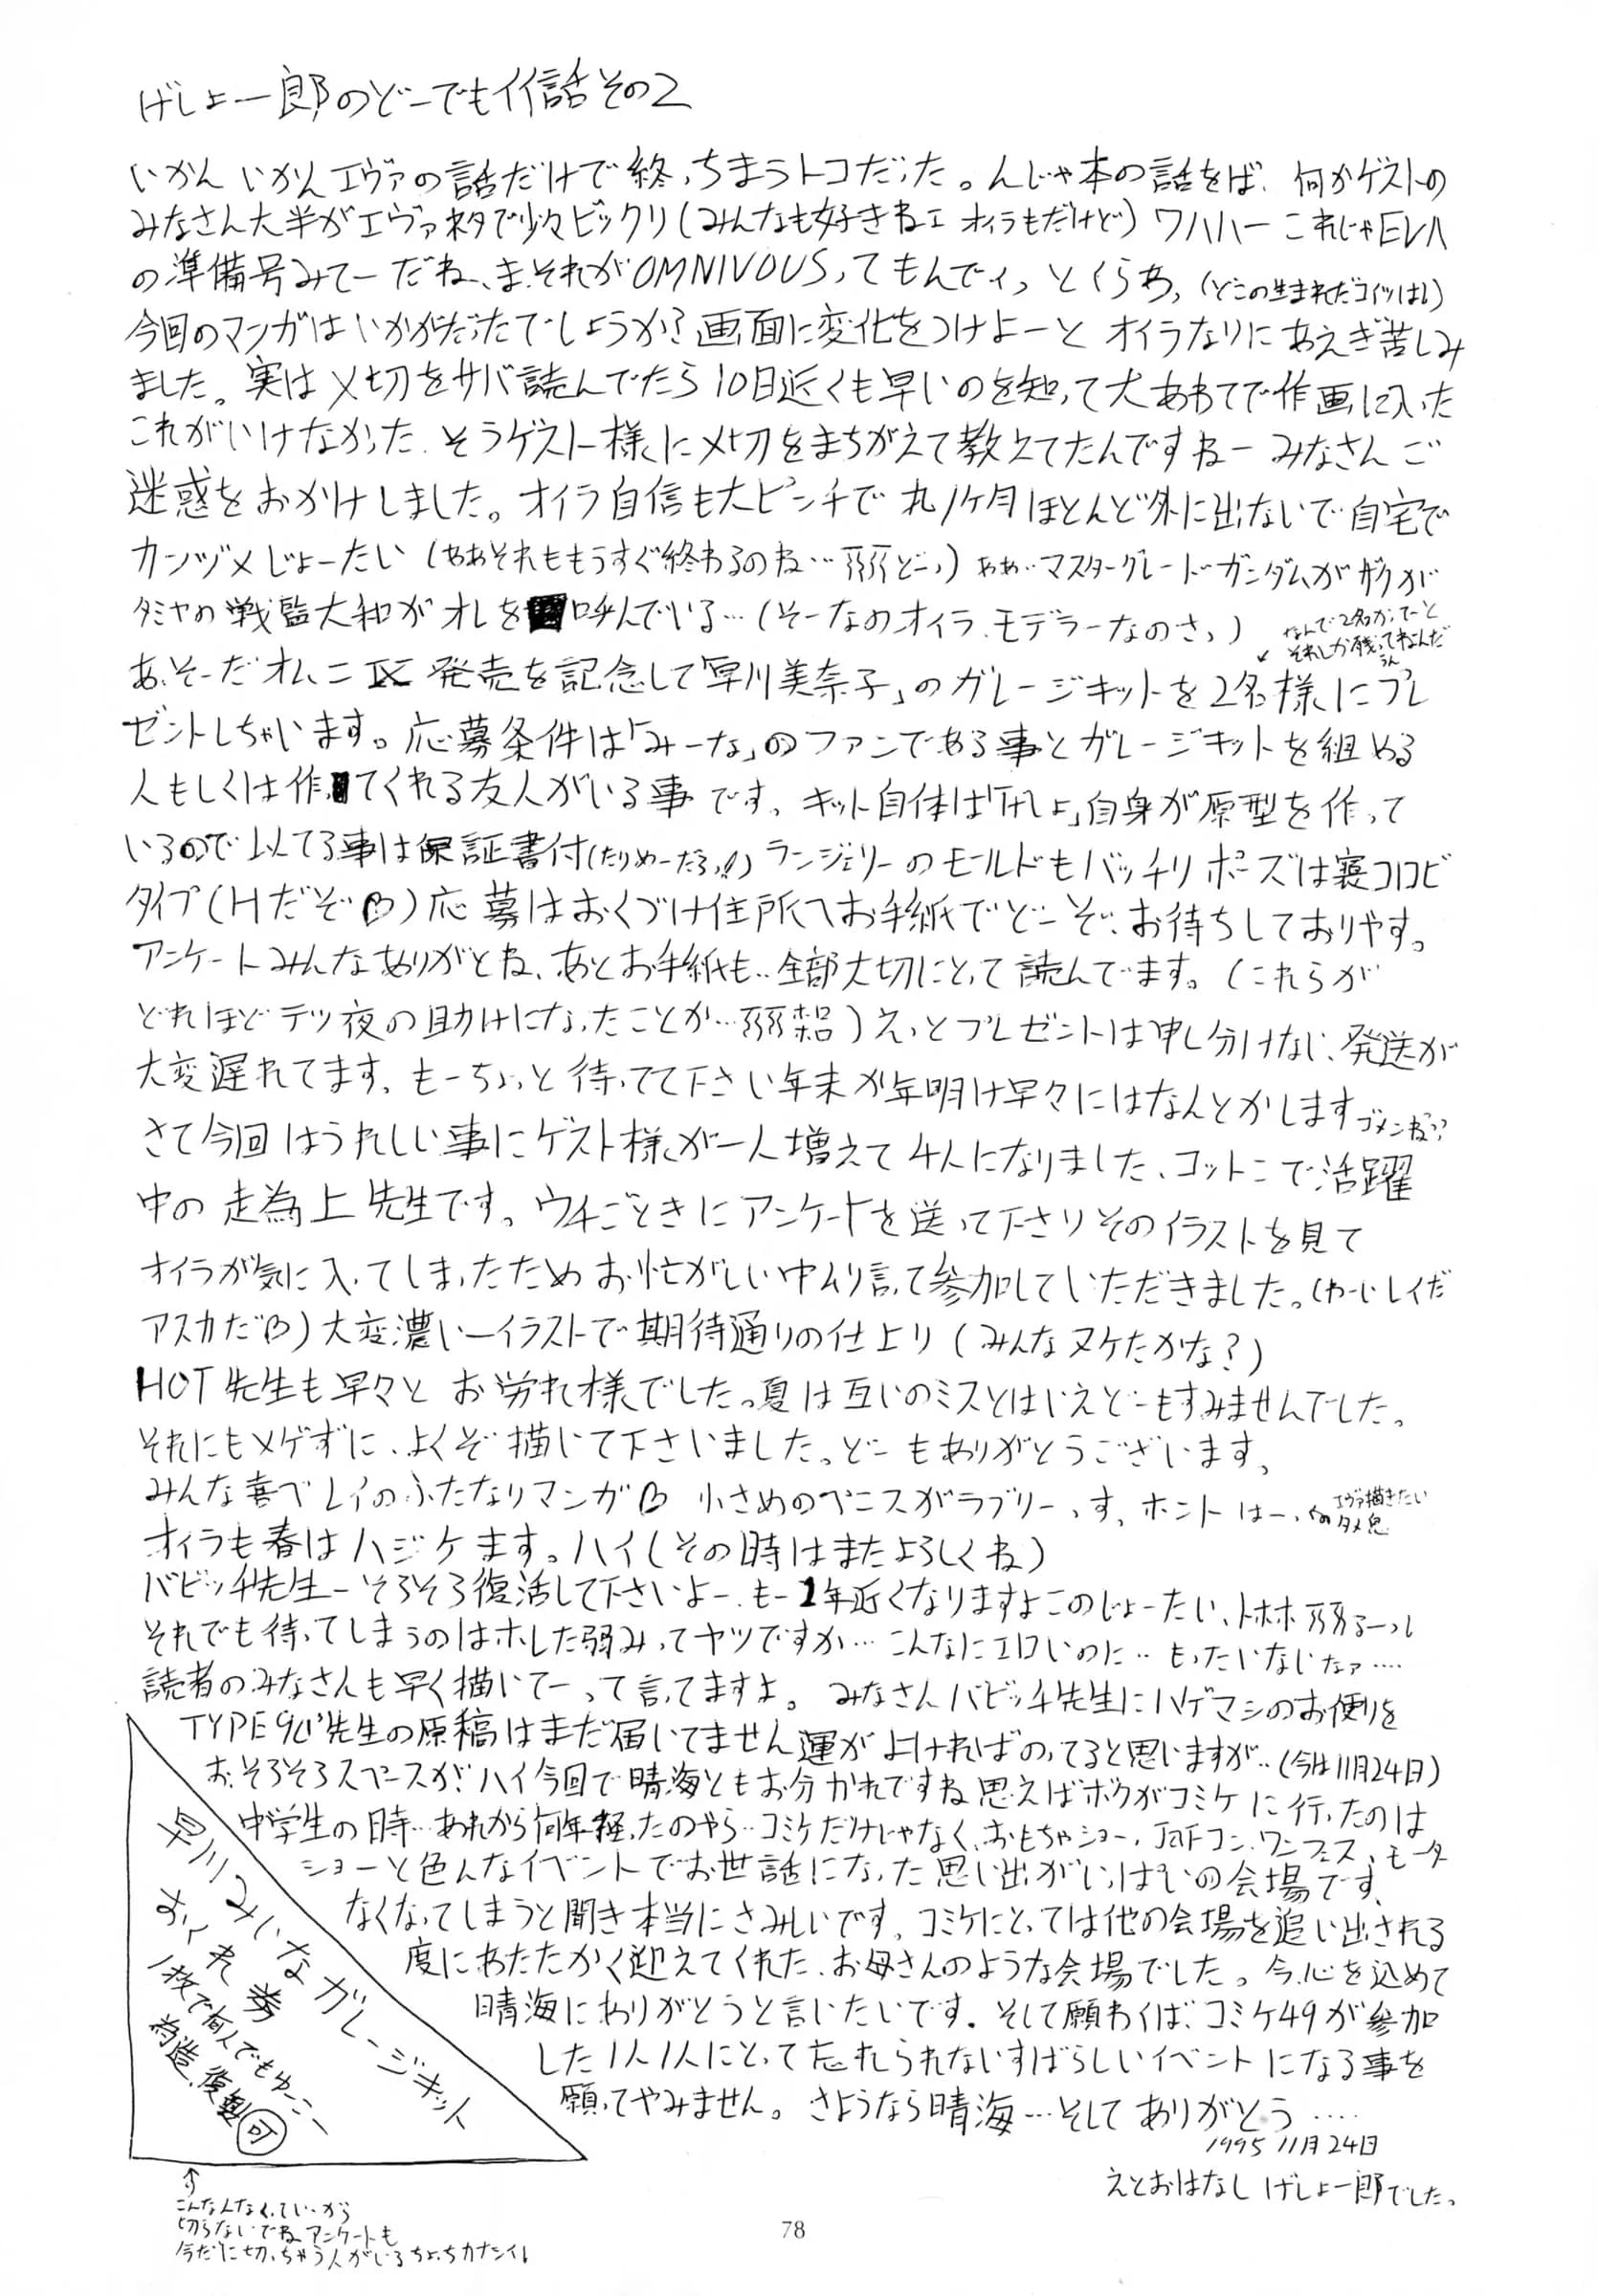 げしょ一郎のどーでもイイ話その2
いかんいかんエヴァの話だけで終っちまうトコだった。んじゃ本の話をば、何かゲストの
みなさん大半がエヴァネタで少々ビックリ(みんなも好きねェ オイラもだけど)ワハハー これじゃEVA
の準備号みてーだね、ま、それがOMNIVOUSってもんでィっとくらぁ、(どこの生まれだコイツは!)
今回のマンガはいかがだったでしょうか?画面に変化をつけよーと オイラなりにあえぎ苦しみ
ました。実は〆切をサバ読んでたら10日近くも早いのを知って大あわてで作画に入った
これがいけなかった、そうゲスト様に〆切をまちがえて教えてたんですねー みなさんご
迷惑をおかけしました。オイラ自信も大ピンチで丸1ケ月ほとんど外に出ないで自宅で
カンヅメじょーたい(ああそれももうすぐ終わるのね…嬲どーっ)ああ‥マスターグレードガンダムがザクが
タミヤの戦監大和がオレを呼んでいる…(そーなのオイラ、モデラーなのさっ)
なんで2名かってーと
それしか残ってねんだ
うん
あ、そーだオムニⅨ発売を記念して「早川美奈子」のガレージキットを2名様にプレ
ゼントしちゃいます。応募条件は「みーな」のファンである事とガレージキットを組める
人もしくは作ってくれる友人がいる事です、キット自体は「げしょ」自身が原型を作って
いるので似てる事は保証書付(たりめーだろっ!!)ランジェリーのモールドもバッチリ ポーズは寝コロビ
タイプ(Hだぞ♡)応募はおくづけ住所へお手紙でどーぞ、お待ちしておりやす。
アンケートみんなありがとね、あとお手紙も‥全部大切にとって読んでます。(これらが
どれほどテツ夜の助けになったことか…)えっとプレゼントは申し分けない、発送が
大変遅れてます、もーちょっと待ってて下さい年末か年明け早々にはなんとかします ゴメンね??
さて今回はうれしい事にゲスト様が一人増えて4人になりました、コットンコで活躍
中の走為上先生です。ウチごときにアンケートを送って下さりそのイラストを見て
オイラが気に入ってしまったためお忙がしい中ムリ言って参加していただきました。(わーいレイだ
アスカだ♡)大変濃いーイラストで期待通りの仕上り(みんなヌケたかな?)
HOT先生も早々とお労れ様でした。夏は互いのミスとはいえどーもすみませんでした。
それにもメゲずに、よくぞ描いて下さいました。どーもありがとうございます、
みんな喜べレイのふたなりマンガ♡ 小さめのペニスがラブリーっす、ホントはー、エヴァ描きたい
オイラも春はハジケます。ハイ(その時はまたよろしくね)
バビッチ先生ーそろそろ復活して下さいよー、もー1年近くなりますよこのじょーたい、トホホ
それでも待ってしまうのはホレた弱みってヤツですか…こんなにエロいのに‥もったいないなァ‥‥
読者のみなさんも早く描いてーって言ってますよ。みなさんバビッチ先生にハゲマシのお便りを
TYPE90'先生の原稿はまだ届いてません運がよければのってると思いますが‥(今は11月24日)
お、そろそろスペースが、ハイ今回で晴海ともお分かれですね思えばボクがコミケに行ったのは
中学生の時…あれから何年経ったのやら‥コミケだけじゃなく、おもちゃショー、JAFコン、ワンフェス、モータ
ショーと色んなイベントでお世話になった思い出がいっぱいの会場です、
なくなってしまうと聞き本当にさみしいです、コミケにとっては他の会場を追い出される
度にあたたかく迎えてくれた、お母さんのような会場でした。今、心を込めて
晴海にありがとうと言いたいです。そして願わくば、コミケ49が参加
した1人1人にとって忘れられないすばらしいイベントになる事を
願ってやみません。さようなら晴海…そしてありがとう‥‥
1995 11月24日
えとおはなし げしょ一郎でした。
早川みいなガレージキット
おくれ券
1枚で何人でもゆーこー
偽造、復製可
↑
こんなんなくっていーから
切らないでね、アンケートも
今だに切っちゃう人がいる ちょっちカナシイ!
78